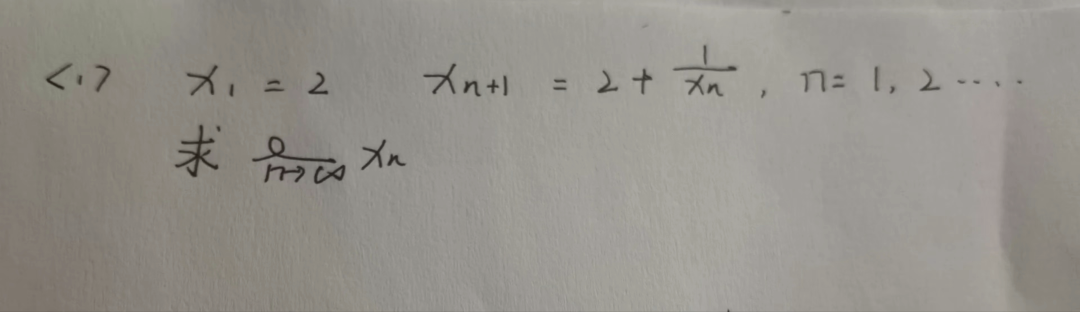 <1> x₁ = 2 xₙ₊₁ = 2 + 1/xₙ, n = 1, 2 ....
求 lim n→∞ xₙ